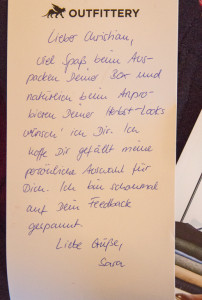 OUTFITTERY
Lieber Christian,
viel Spaß beim Aus-
packen Deiner Box und
natürlich beim Anpro-
bieren Deiner Herbst-Looks
wünsch' ich Dir. Ich
hoffe Dir gefällt meine
persönliche Auswahl für
Dich. Ich bin schonmal
auf Dein Feedback
gespannt.
Liebe Grüße,
Sara